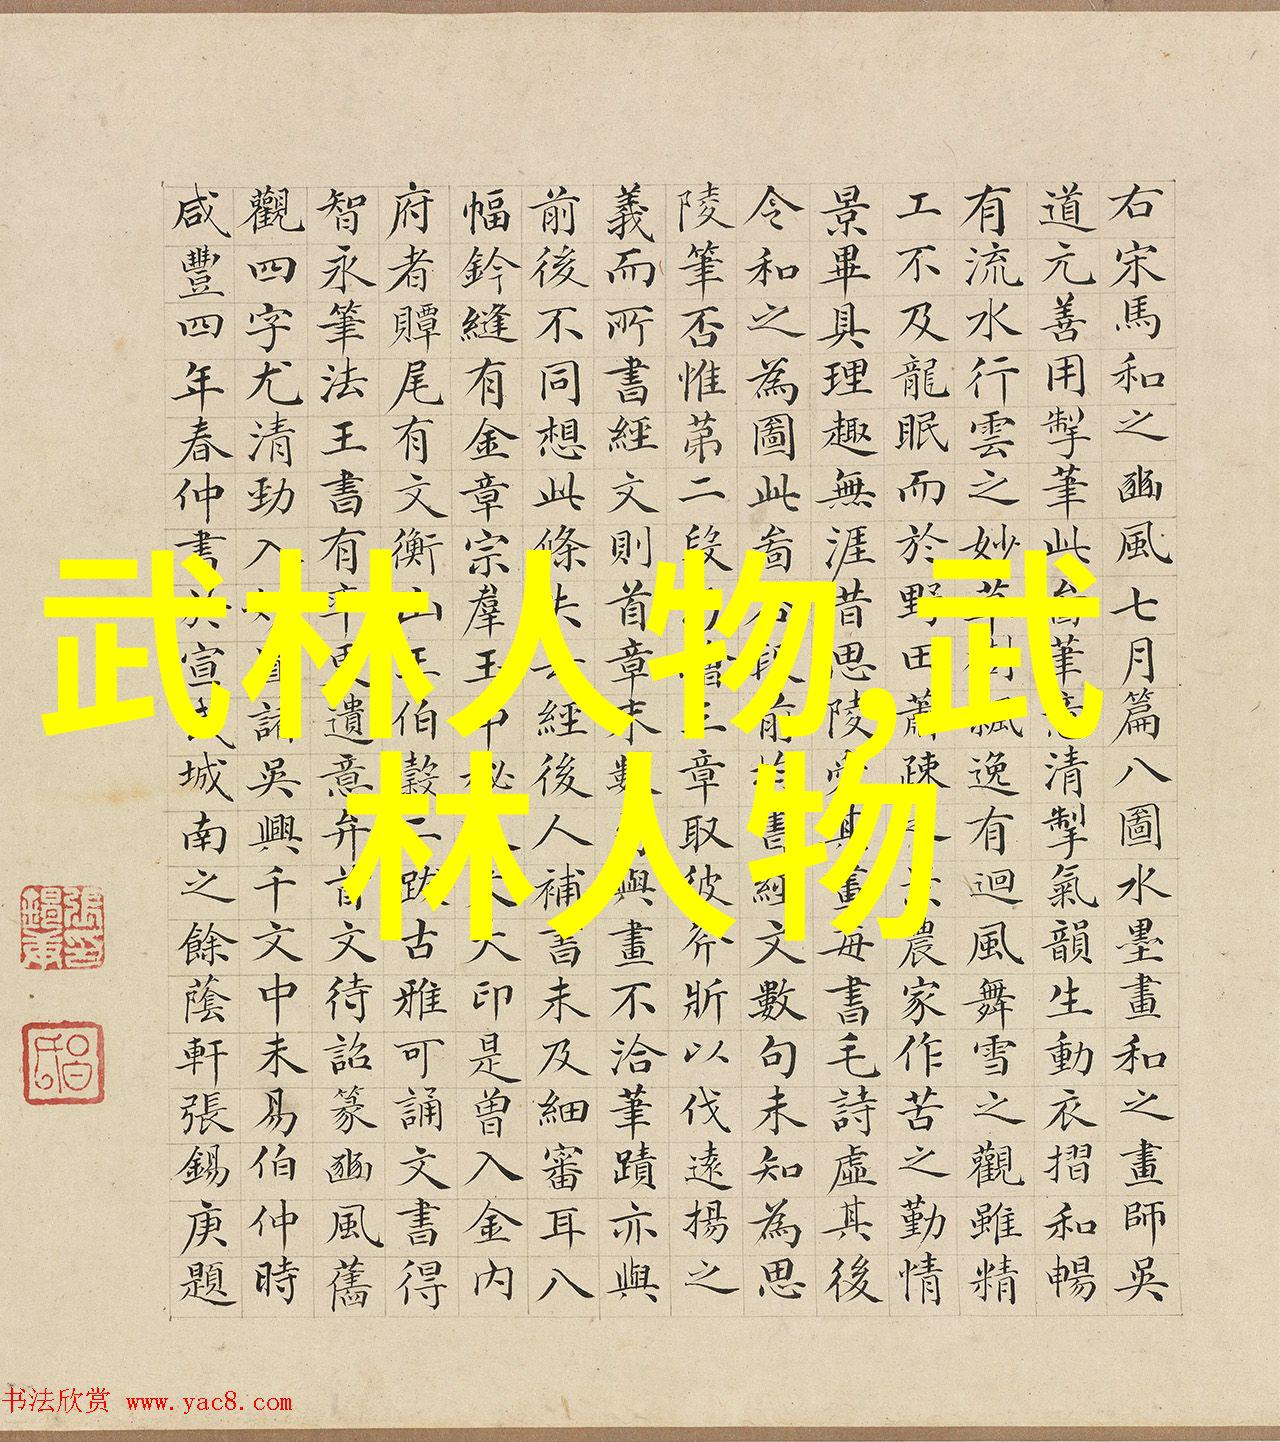 右宋馬和之豳風七月篇八圖水墨畫和之畫師吳
道元善用掣筆此啚筆意清掣氣韻生動衣摺和暢
有流水行雲之妙草樹飄逸有迴風舞雪之觀雖精
工不及龍眠而於野田蕭疎農家作苦之勤情
景畢具理趣無涯昔思陵愛其畫每書毛詩虛其後
令和之為圖此啚段前書經文數句未知為思
陵筆否惟第二段繪三章取彼斧斨以伐遠揚之
義而所書經文則首章末數與畫不洽筆蹟亦與
前後不同想此條失去經後人補書未及細審耳八
幅鈐縫有金章宗羣玉中秘大印是曾入金內
府者贉尾有文衡山王伯穀二跋古雅可誦文書得
智永筆法王書有率更遺意弁首文待詔篆豳風舊
觀四字尤清勁入置諸吳興千文中未易伯仲時
咸豐四年春仲書於宣武城南之餘蔭軒張錫庚題
武林人物,武
林人物
书法欣赏 www.yac8.com